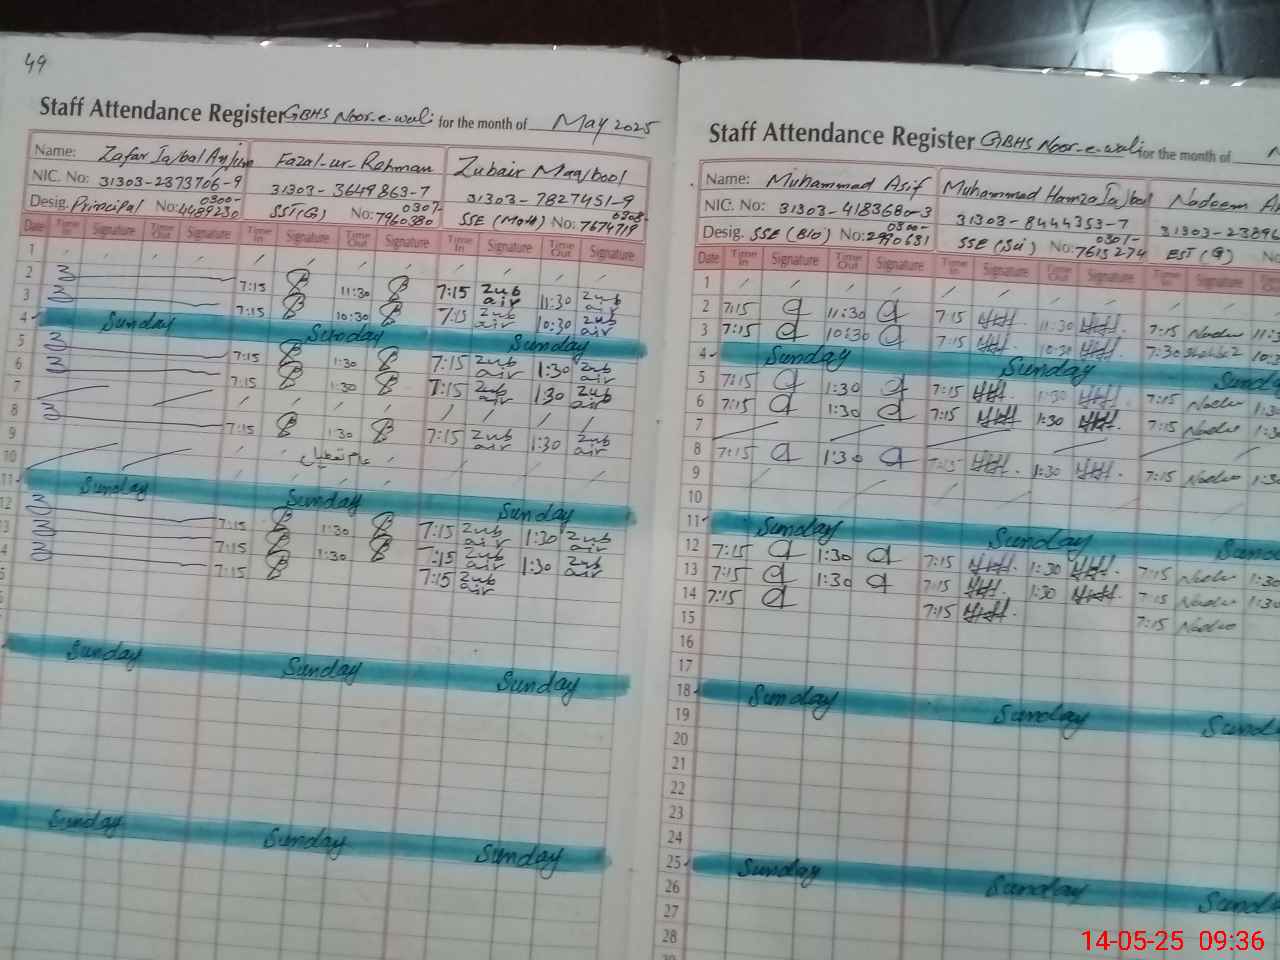 49
Staff Attendance Register GBHS Noor-e-wali for the month of May 2025
Name: Zafar Iqbal Anjum Fazal-ur-Rehman Zubair Maqbool
NIC. No: 31303-2373706-9 31303-3649863-7 31303-7827451-9
Desig. Principal No: 0300-4469230 SST(G) No: 0307-7960380 SSE (Math) No: 0308-7674719
Date Time In Signature Time Out Signature Time In Signature Time Out Signature Time In Signature Time Out Signature
1
2 7:15 11:30 7:15 Zubair 11:30 Zubair
3 7:15 10:30 7:15 Zubair 10:30 Zubair
4 Sunday Sunday Sunday
5 7:15 1:30 7:15 Zubair 1:30 Zubair
6 7:15 1:30 7:15 Zubair 1:30 Zubair
7
8 7:15 1:30 7:15 Zubair 1:30 Zubair
9 عام تعطیل
10
11 Sunday Sunday Sunday
12 7:15 1:30 7:15 Zubair 1:30 Zubair
13 7:15 1:30 7:15 Zubair 1:30 Zubair
14 7:15 7:15 Zubair
Sunday Sunday Sunday
Sunday Sunday Sunday
Staff Attendance Register GBHS Noor-e-wali for the month of
Name: Muhammad Asif Muhammad Hamza Iqbal Nadeem
NIC. No: 31303-4183680-3 31303-8444353-7 31303-23896
Desig. SSE (Bio) No: 0300-2990631 SSE (Sci) No: 0301-7615274 EST (G) No
Date Time In Signature Time Out Signature Time In Signature Time Out Signature Time In Signature Time Out
1
2 7:15 11:30 7:15 11:30 7:15
3 7:15 10:30 7:15 10:30 7:30
4 Sunday Sunday Sunday
5 7:15 1:30 7:15 1:30 7:15
6 7:15 1:30 7:15 1:30 7:15
7
8 7:15 1:30 7:15 1:30 7:15
9
10
11 Sunday Sunday Sunday
12 7:15 1:30 7:15 1:30 7:15
13 7:15 1:30 7:15 1:30 7:15
14 7:15 7:15 7:15
15
16
17
18 Sunday Sunday Sunday
19
20
21
22
23
24
25 Sunday Sunday Sunday
26
27
28
14-05-25 09:36